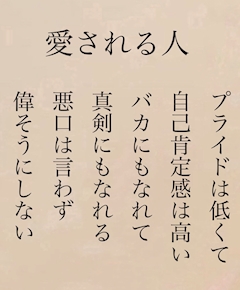 愛される人
プライドは低くて
自己肯定感は高い
バカにもなれて
真剣にもなれる
悪口は言わず
偉そうにしない